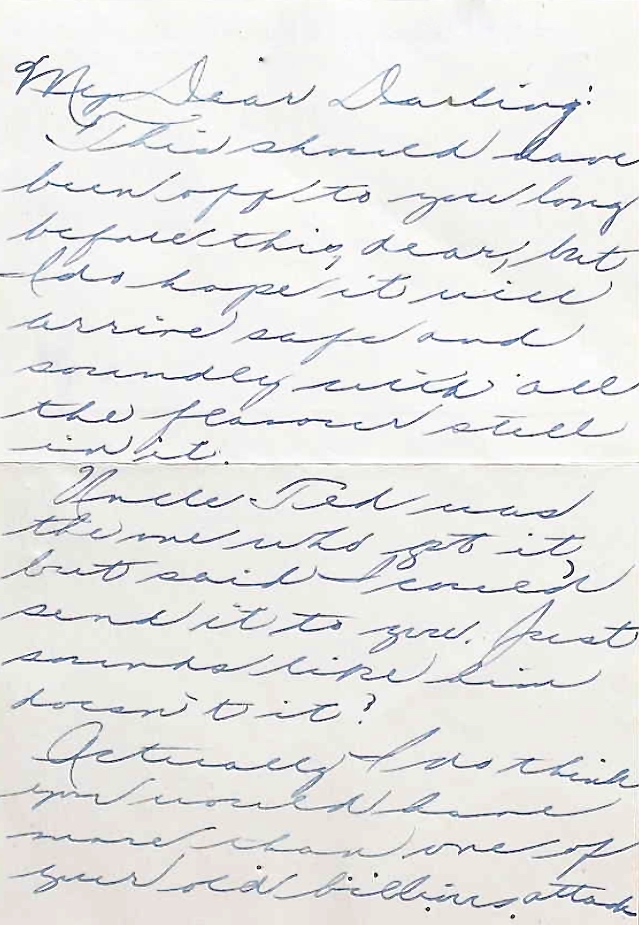 My Dear Darling:
This should have
been off to you long
before this, dear, but
I do hope it will
arrive safe and
soundly with all
the flavour still
in it.
Uncle Ted was
the one who got it
but said I could
send it to you. Just
sounds like him
doesn't it?
Actually I do think
you would have
more than one of
your old billious attack